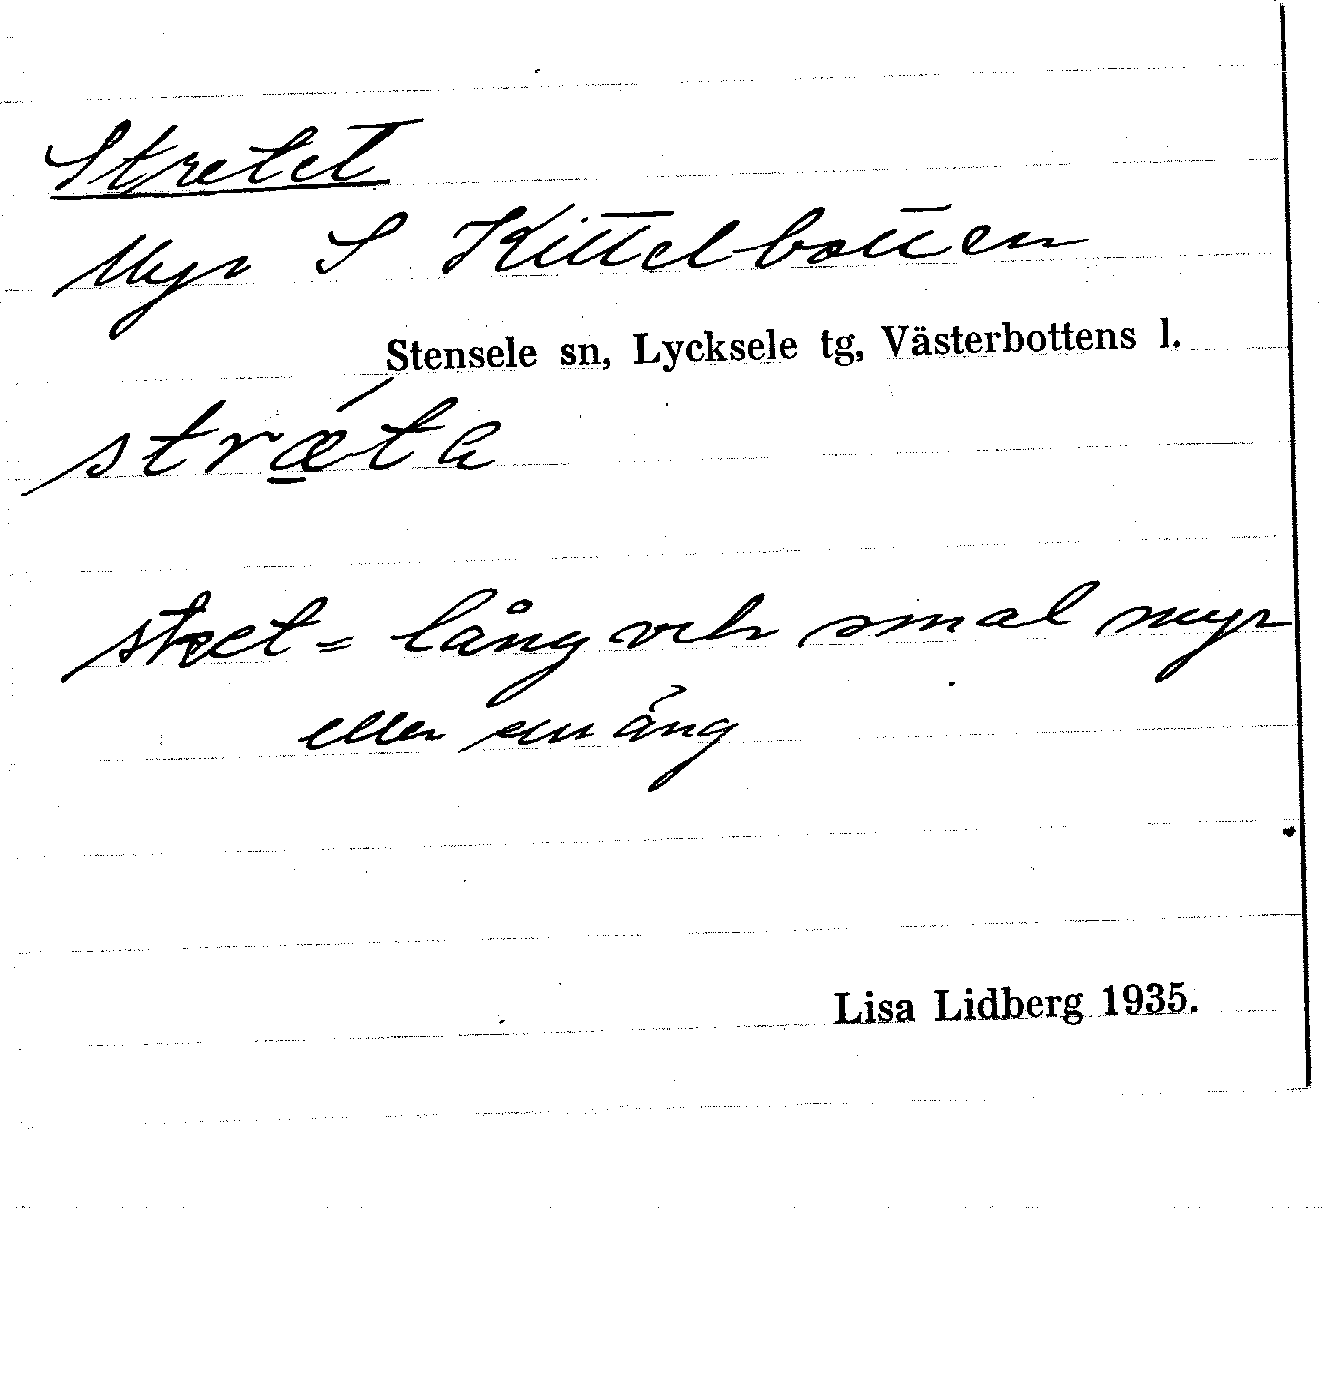 Stretet
Myr S Kittelbotten
Stensele sn, Lycksele tg, Västerbottens l.
strǽ̠ta
stret = lång och smal myr
eller en äng
Lisa Lidberg 1935.